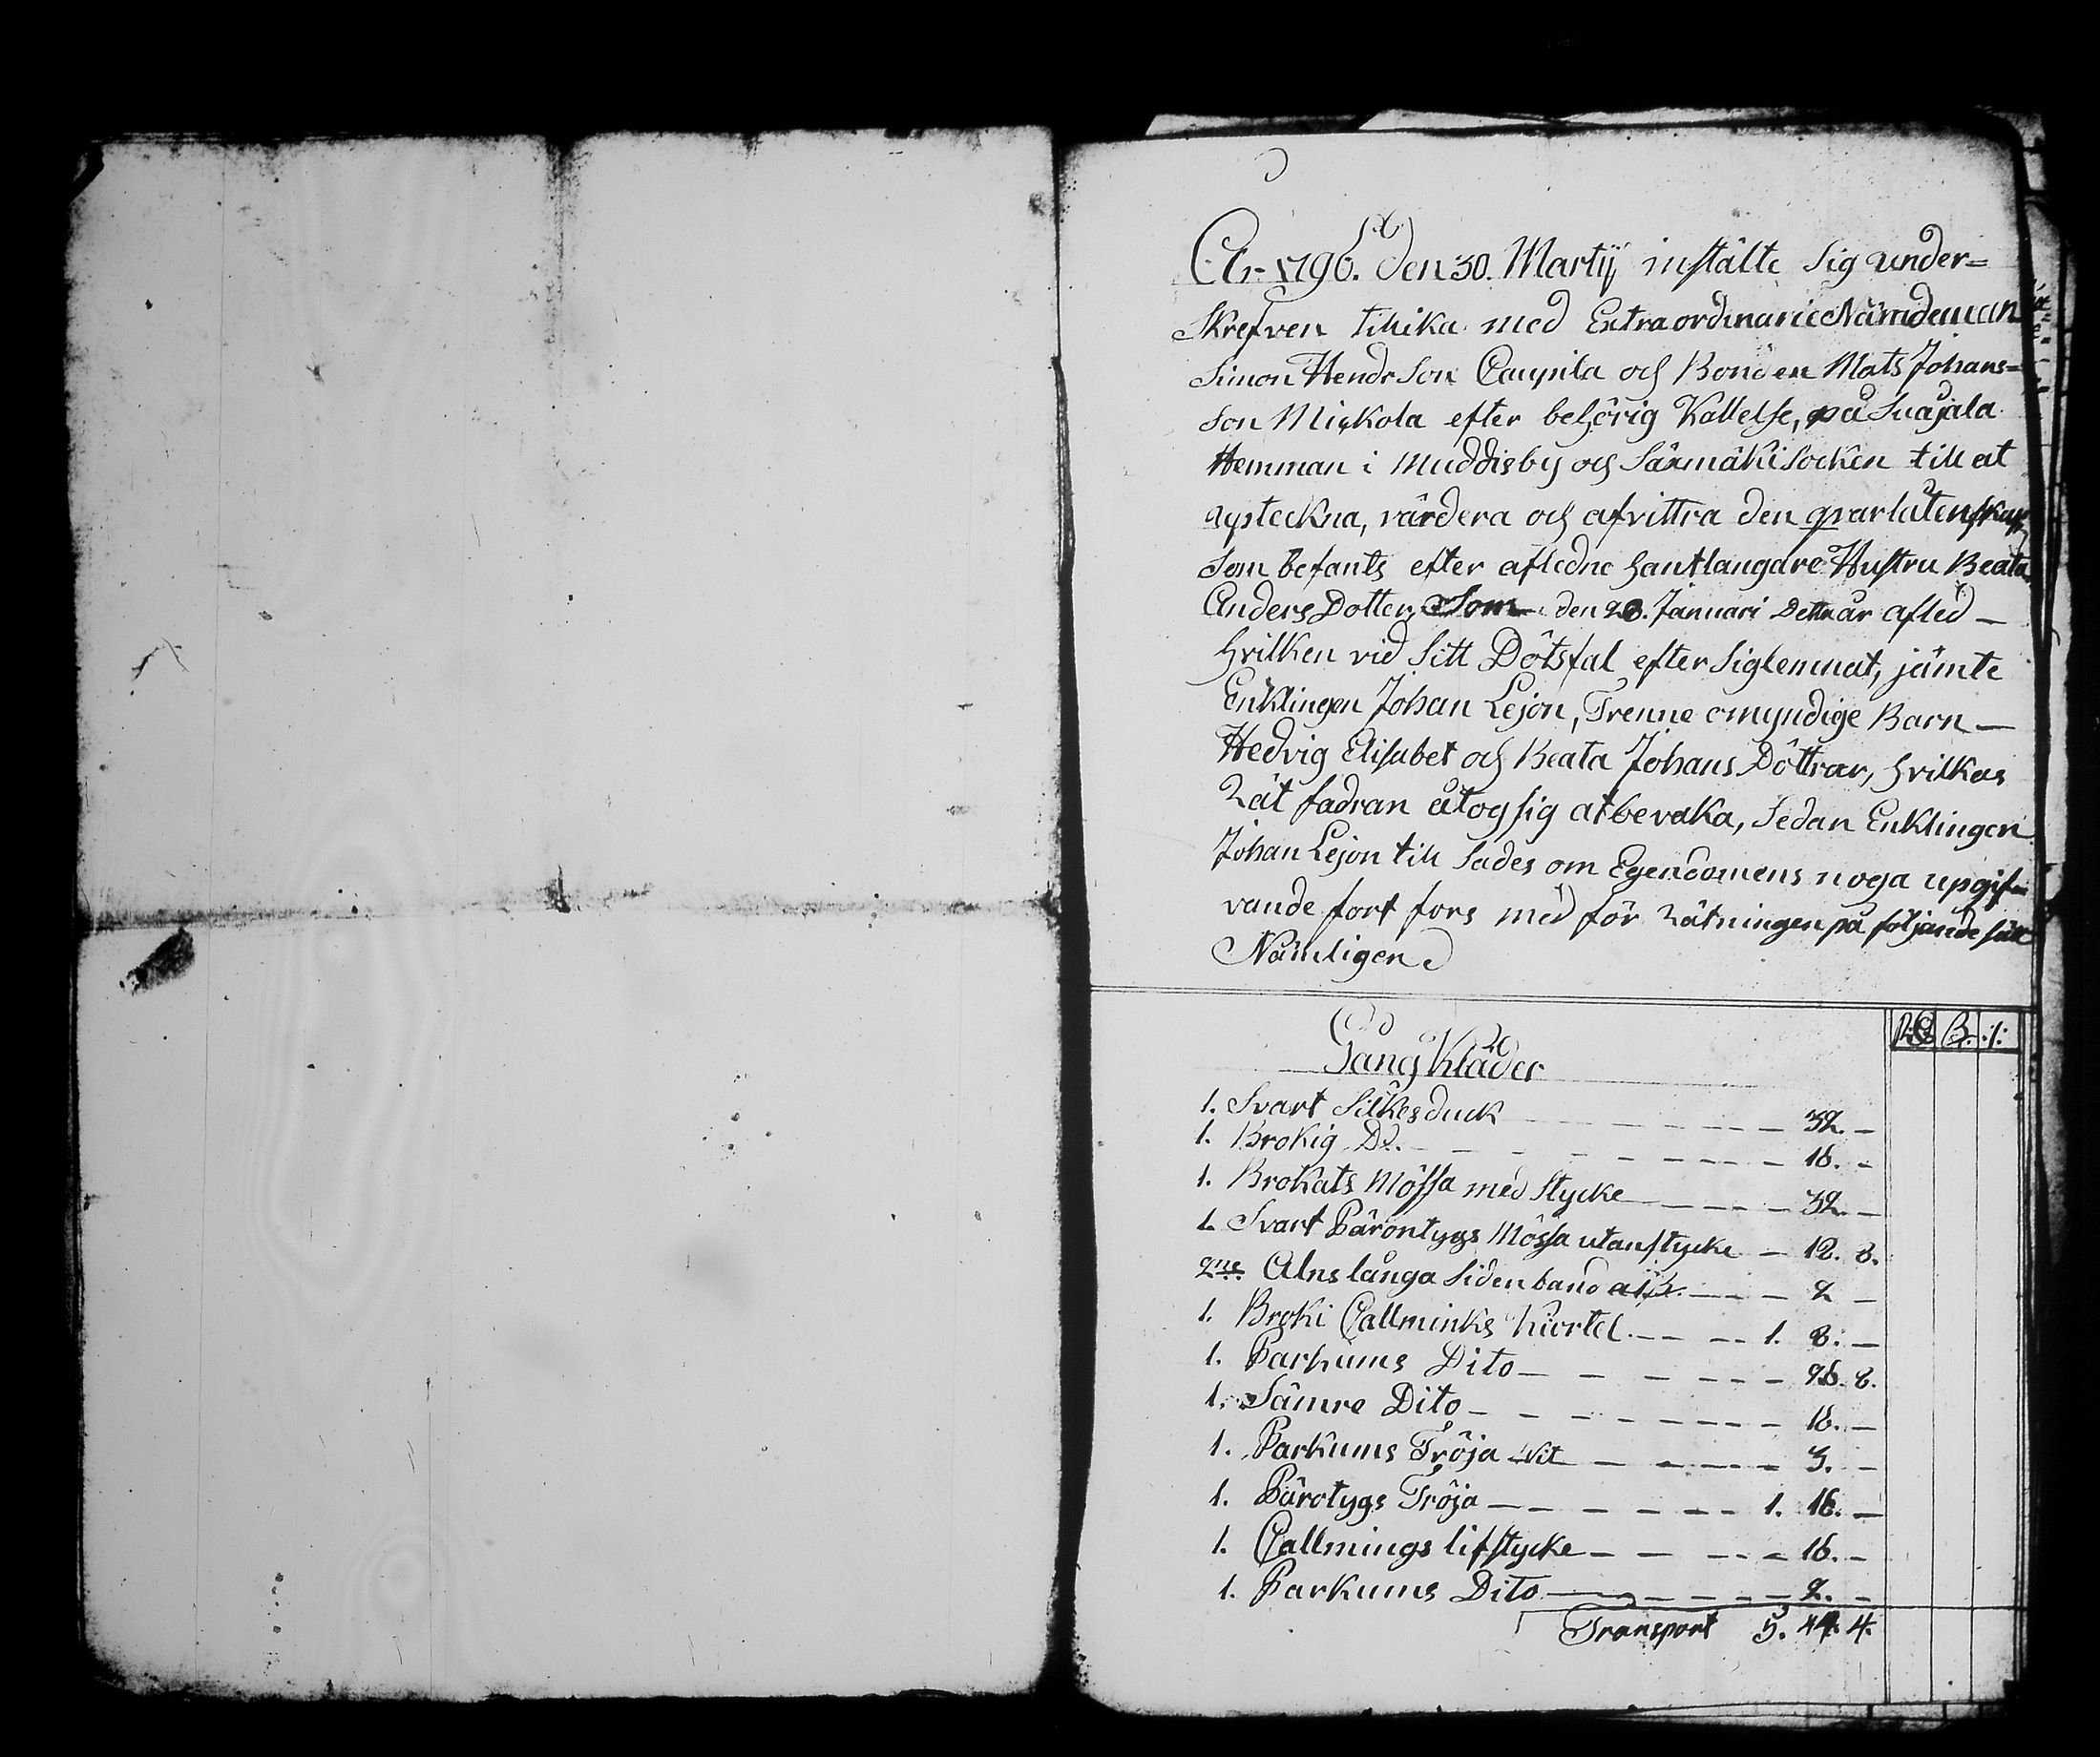 År 1796. den 30. Martij instälte sig under=
skrefven tillika med Extraordinarie Nämdeman
Simon Hendrson Caupila och Bonden Mats Johans=
son Mickola efter behörig Kallelse, på Suajala
Hemman i Muddisby och Säxmäki Socken till at
upteckna, värdera och afvittra den qvarlåtenskap
som befants efter afledne hantlangare Hustru Beata
Anders Dotter, som den 28. Januari Detta år afled —
hvilken vid sitt Dötsfal efter sig lemnat, jämte
Enklingen Johan Lejon, Trenne omyndige Barn —
Hedvig Elisabet och Beata Johans Döttrar, hvilkas
Rät fadran åtog sig at bevaka, sedan Enklingen
Johan Lejon till sades om Egendomens noga upgif=
vande fort fors med för rätningen på följande sätt
Nämligen
RS. B. :/:
Gång Kläder
1. Svart Silkesduck — 32. —
1. Brokig Do. — 16. —
1. Brokats Mössa med stycke — 32. —
1. Svart Bärontygs Mössa utan stycke — 12. 8.
2ne. Alns långa Siden band a 1 B. — 2 —
1. Broki Callminks Kiortel — 1. 8. —
1. Parkums Dito — 26. 8.
1. Sämre Dito — 16. —
1. Parkums Tröja vit — 3. —
1. Bärotygs Tröja — 1. 16. —
1. Callmings lifstycke — 16. —
1. Parkums Dito — 2. —
Transport 5. 44. 4.